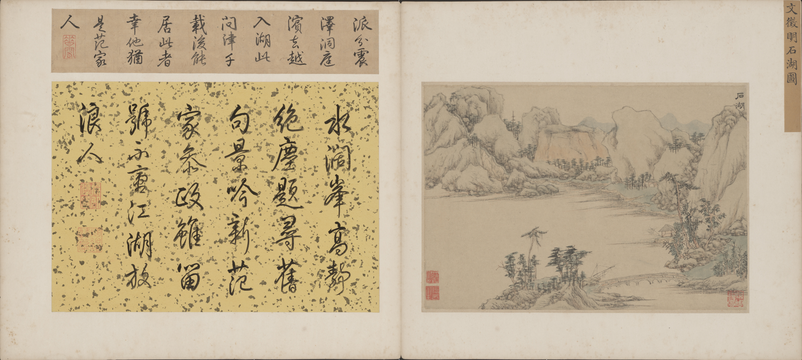 文徵明石湖圖
石湖
派分震
澤洞庭
濱去越
入湖此
问津千
載後能
居此者
幸他猶
是范家
人
水濶峯高靜
絶塵題尋舊
句景吟新范
家参政雖留
號不啻江湖放
浪人